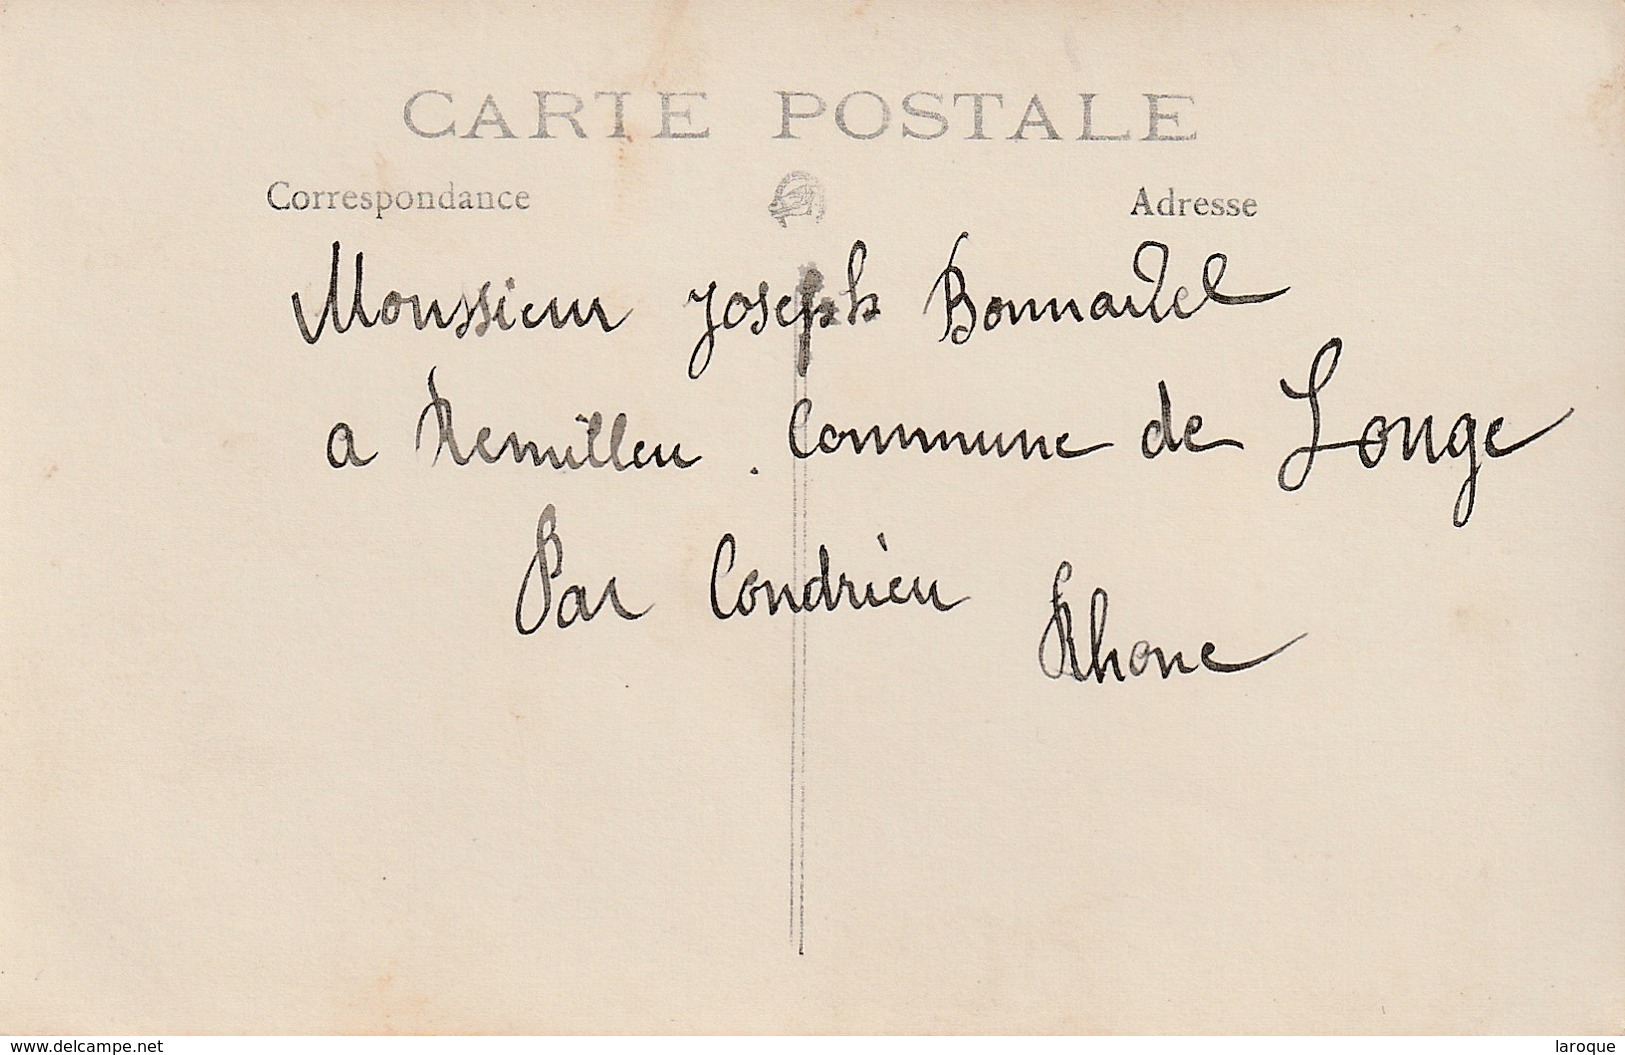 CARTE POSTALE
Correspondance Adresse
Monssieur Joseph Bonnardel
a Remilleu . Commune de Longe
Par Condrieu
Rhone
www.delcampe.net laroque